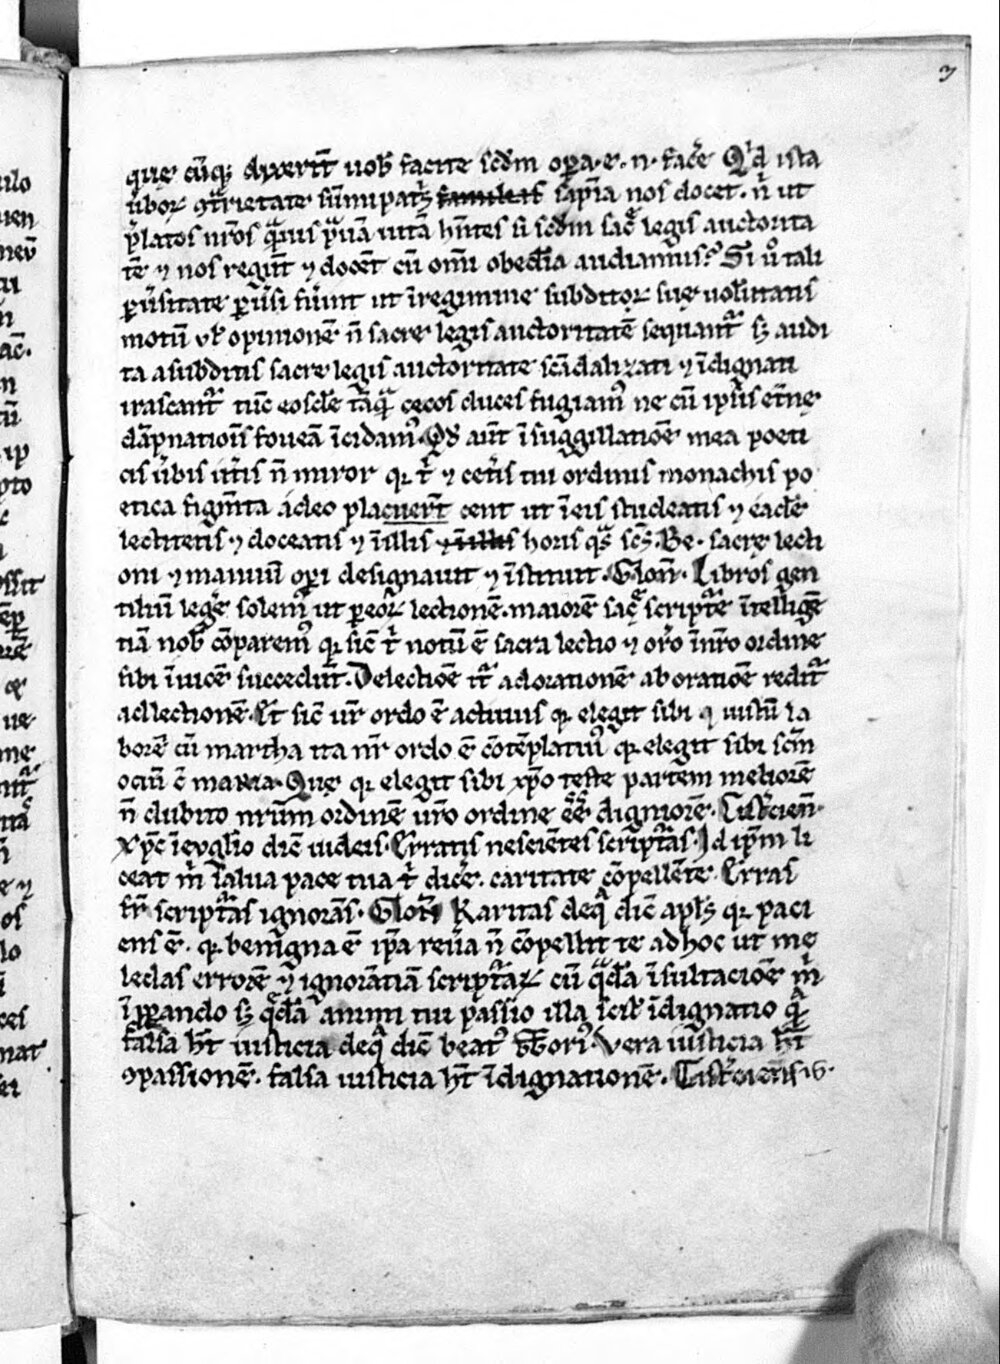 3
quę cūq; dixerīt uob̄ facite scd̄m oꝑa.e.n. facͤe Qd̓ ista
ůboꝝ ꝯtͣrietate sūmi patͥs sapīa nos docet. n̄ ut
p̄latos nr̄os quͣis pͣuā uitā hn̄tes si scd̄m sacͤ legis auctorita
tē ⁊ nos regūt ⁊ docēt cū om̄i obedīa audiamus? Si ů tali
ꝑůsitate ꝑůsi fůint ut ī regimine subditoꝝ suę uolūtatis
motū uł opinionē n̄ sacre legis auctoritatē sequant᷑ sꝫ audi
ta a subditis sacre legis auctoritate scādalizati ⁊ īdignati
irascant᷑ tūc eosdē tāqͣ cęcos duces fugiam᷒ ne cū ipsis et̄nę
dāpnationis foueā īcidam᷒. Qd̓ aūt ī suggillatiōe mea poeti
cis ůbis ut̓is n̄ miror qꝛ t̓ ⁊ cet̓is tui ordinis monachis po
etica figm̄ta adeo placuer̄t cent ut ī eis studeatis ⁊ eadē
lectitetis ⁊ doceatis ⁊ ī illis horis qͣs scs̄. Be. sacrę lecti
oni ⁊ manuū oꝑi designauit ⁊ īstituit. Clon̄. Libros gen
tiliū legͤe solem᷒ ut ꝑ eoꝝ lectionē maiorē sacͤ scriptͤe ītelligē
tiā nob̄ cōparem᷒ qꝛ sic̄ t̓ notū ē sacra lectio ⁊ orō ī nr̄o ordine
sibi ī uicē succedūt. De lectiōe it᷑ ad orationē ab oratiōe redit᷑
ad lectionē. Et sic̄ ur̄ ordo ē actiuus qꝛ elegit sibi iustū la
borē cū martha ita nr̄ ordo ē cōtēplatiu᷒ qꝛ elegit sibi scm̄
ociū c̄ maria. Quę qꝛ elegit sibi xp̄o teste partem meliorē
n̄ dubito nr̄um ordinē ur̄o ordine eē digniorē. Cistͤcien̄.
Xp̄c ī euglīo dic̄ iudeis. Erratis nescientes scriptͣas. Id ip̄m li
ceat m̄ salua pace tua t̓ dicͤe. caritate cōpellēte. Erras
fr̄ scriptͣas ignorās. Clon̄ Karitas de qͣ dic̄ apłs qꝛ paci
ens ē. qꝛ benigna ē ip̄a reůa n̄ cōpellit te ad hoc ut me
ledas errorē ⁊ ignorātiā scriptͣaꝝ cū qͣdā īsultaciōe m̄
īꝓꝑando sꝫ qͤdā animi tui passio illa scił īdignatio qͣ
falsa hēt iusticia de qͣ dic̄ beat᷒ Gḡori᷒. Vera iusticia hēt
ꝯpassionē. falsa iusticia hēt īdignationē. Cistͤciēsis.